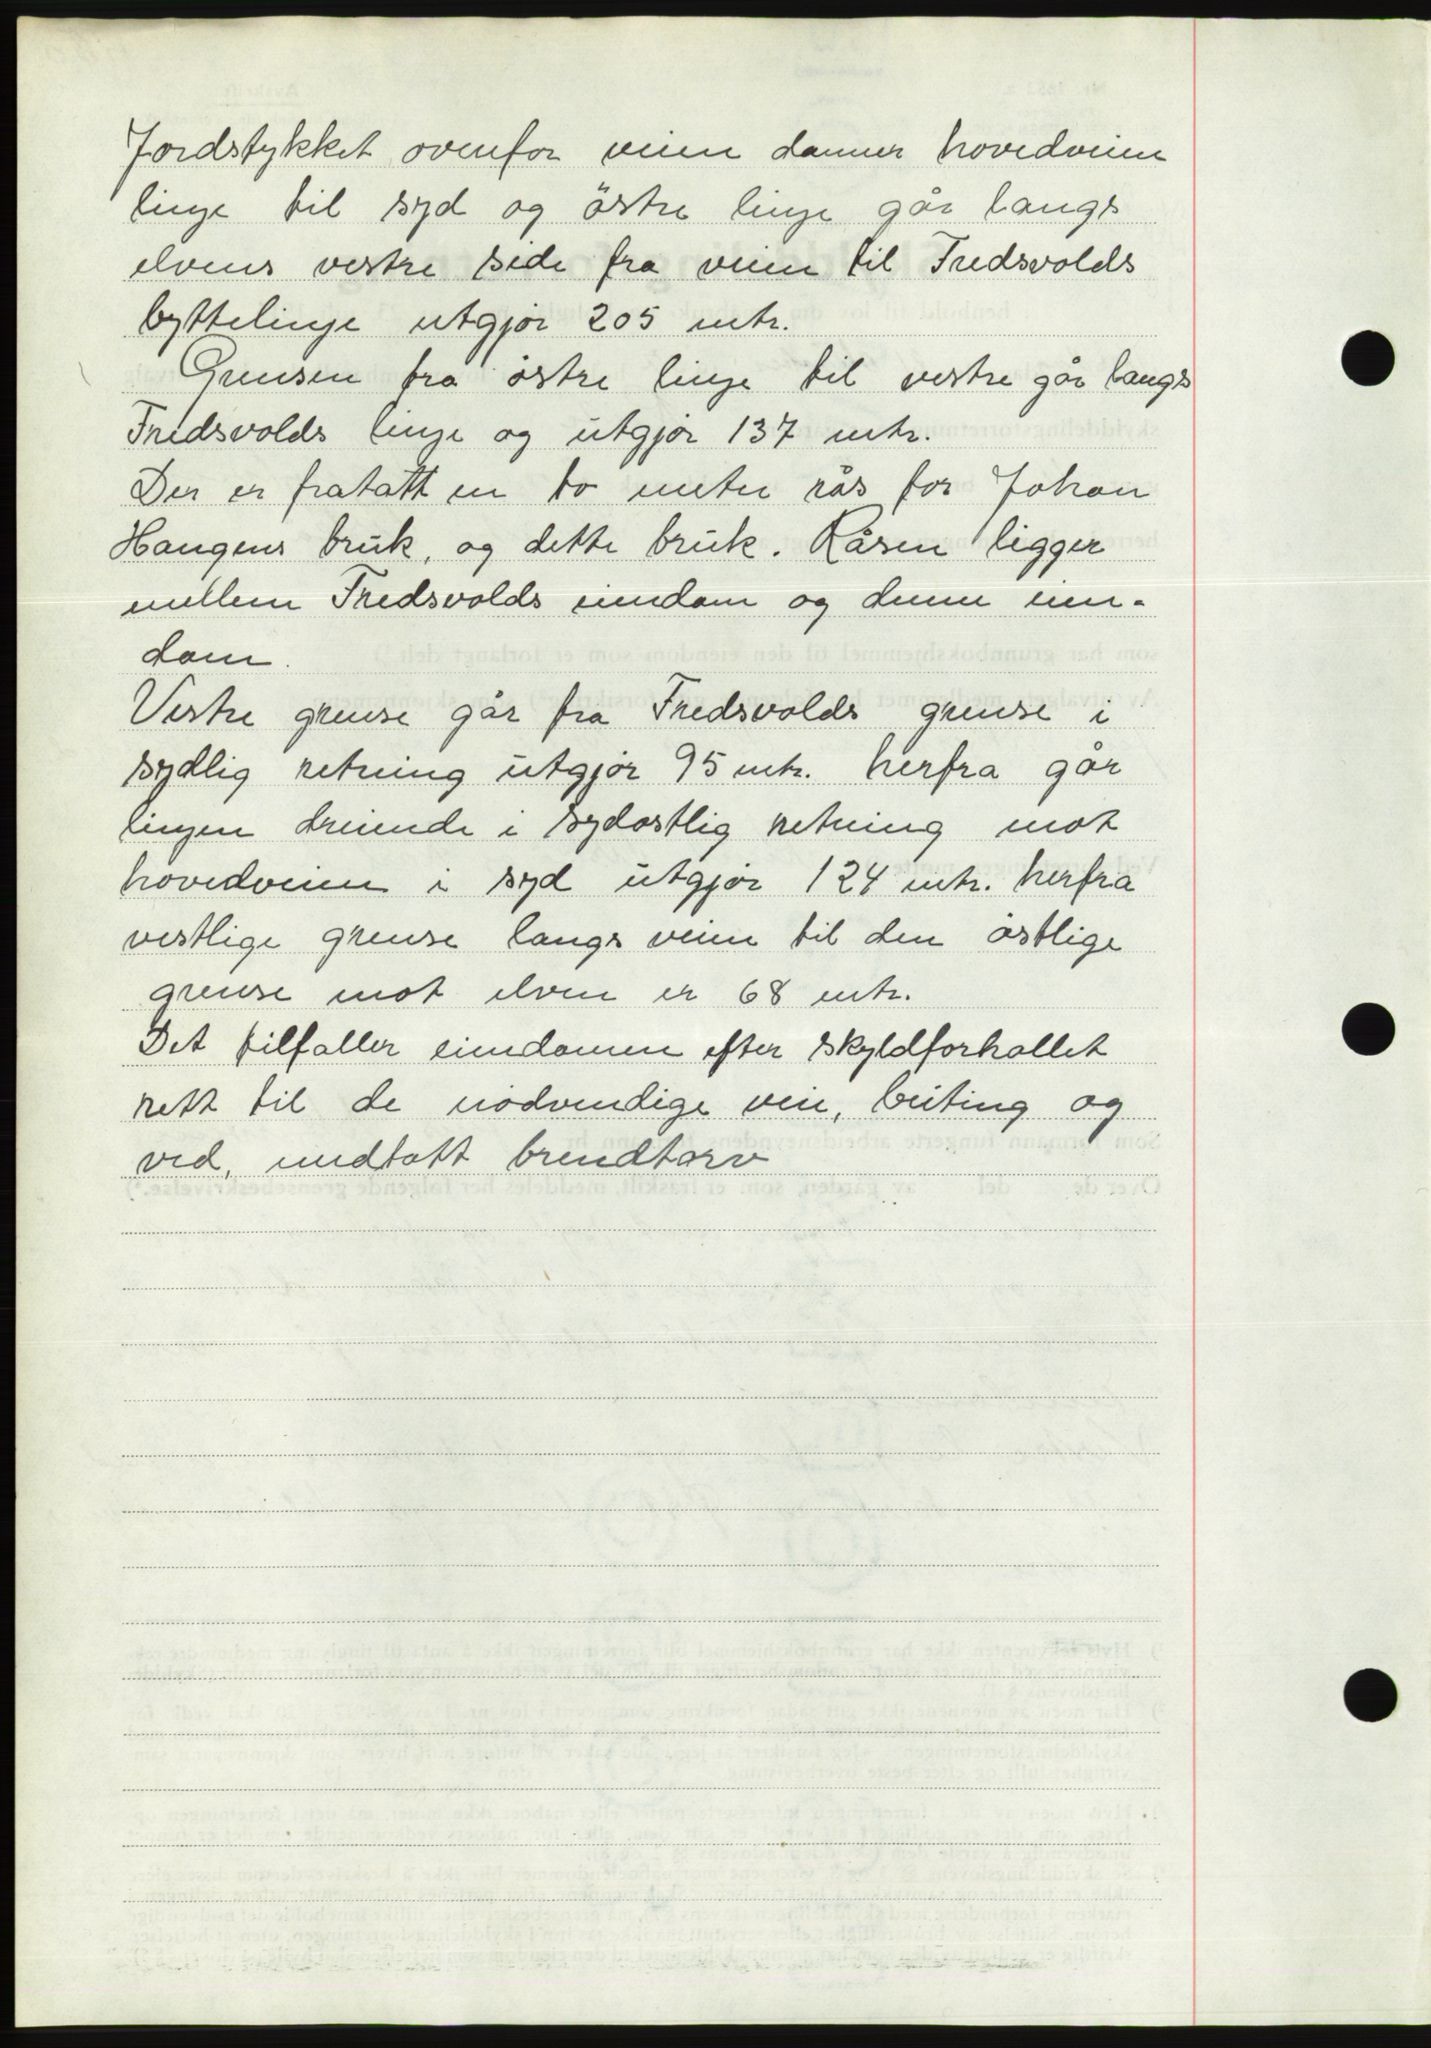 Jordstykket ovenfor veien danner hovedveien
linje til syd og östre linje går langs
elvens vestre side fra veien til Fredsvolds
byttelinje utgjör 205 mtr.
Grensen fra östre linje til vestre går langs
Fredsvolds linje og utgjör 137 mtr.
Der er fratatt en to meter rås for Johan
Haugens bruk, og dette bruk. Råsen ligger
mellem Fredsvolds eiendom og denne eien-
dom.
Vestre grense går fra Fredsvolds grense i
sydlig retning utgjör 95 mtr. herfra går
linjen dreiende i sydostlig retning mot
hovedveien i syd utgjör 124 mtr. herfra
vestlige grense langs veien til den östlige
grense mot elven er 68 mtr.
Det tilfaller eiendomen efter skyldforhollet
rett til de nödvendige vei, beiting og
ved, undtatt brendtorv